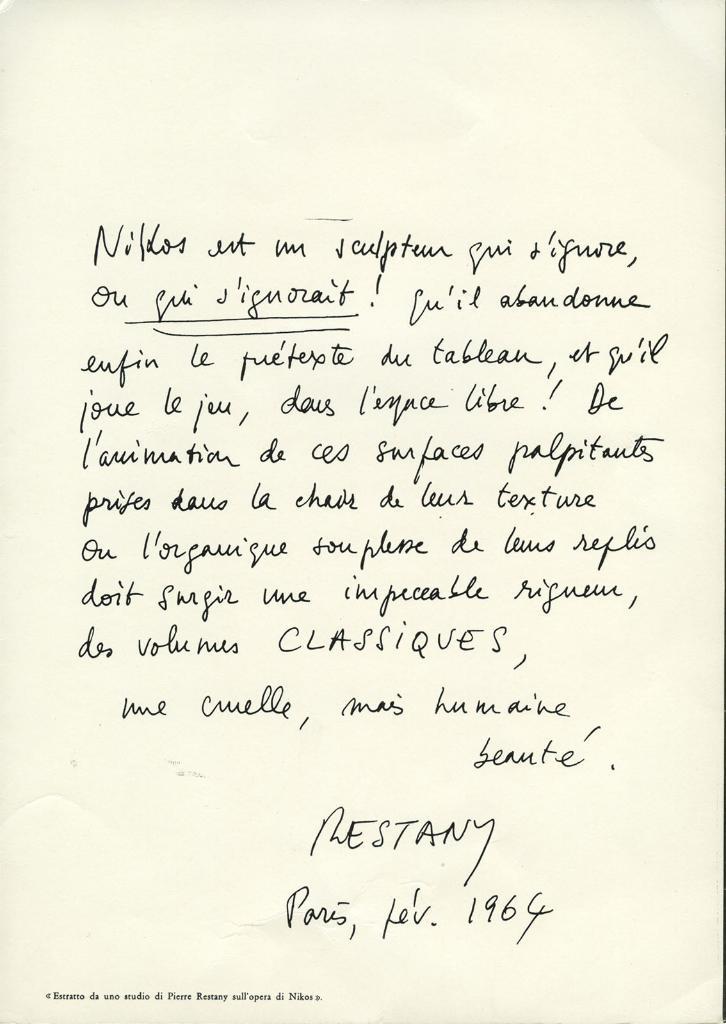 Nikos est un sculpteur qui s'ignore,
ou qui s'ignorait ! qu'il abandonne
enfin le prétexte du tableau, et qu'il
joue le jeu, dans l'espace libre ! De
l'animation de ces surfaces palpitantes
prises dans la chair de leur texture
ou l'organique souplesse de leurs replis
doit surgir une impeccable rigueur,
des volumes CLASSIQUES,
une cruelle, mais humaine
beauté.
RESTANY
Paris, fév. 1964
« Estratto da uno studio di Pierre Restany sull'opera di Nikos ».